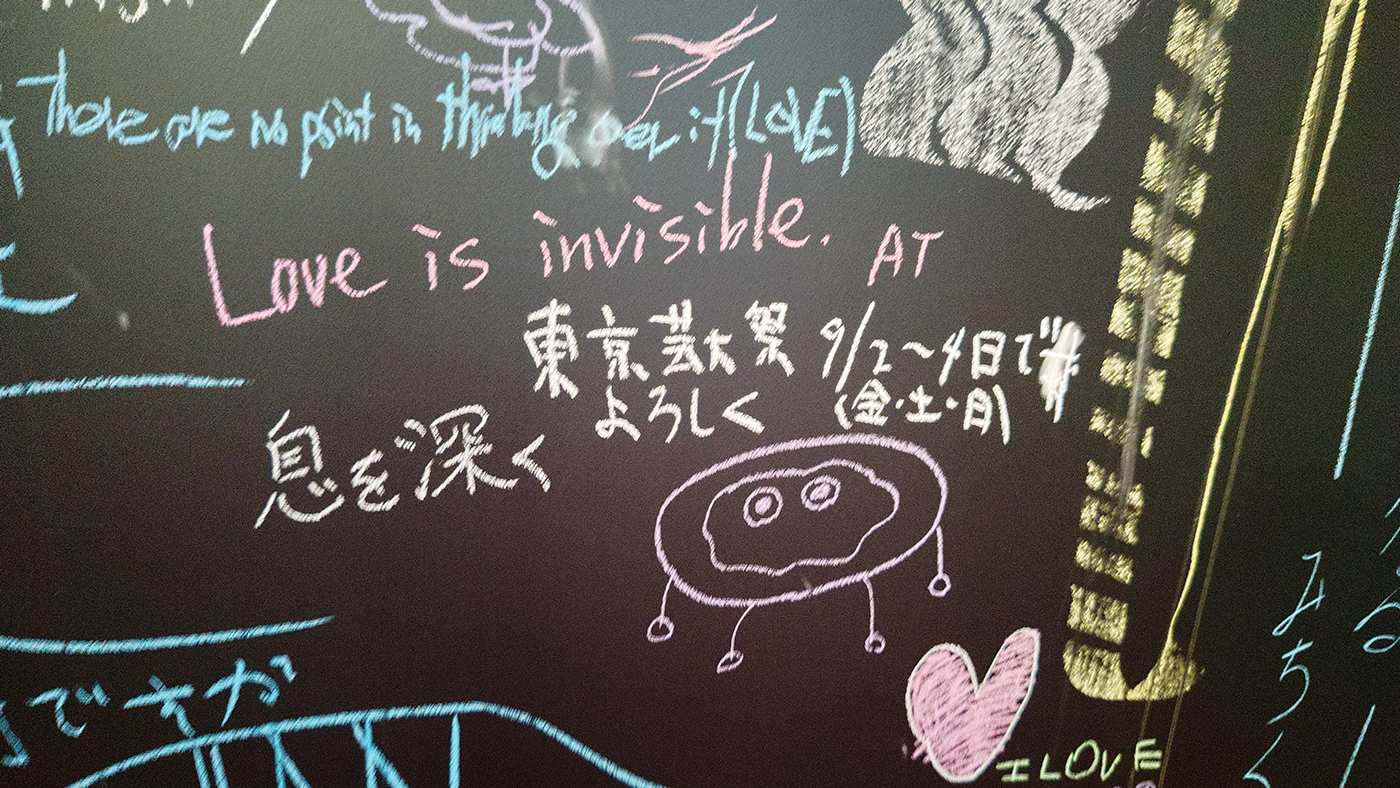 Thove are no point in thinking over it (LOVE)
Love is invisible. AT
東京芸大祭 9/2〜4日で
よろしく (金・土・日)
息を深く
ですが
みちく
I LOVE